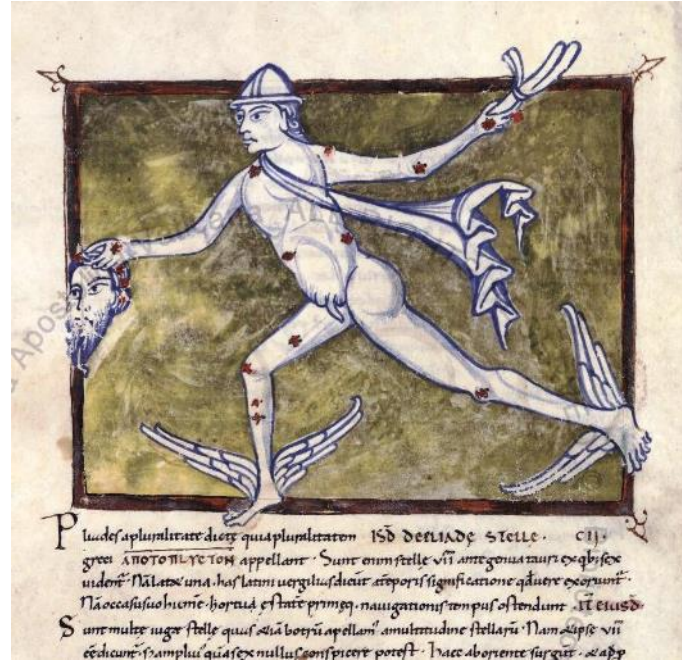 Pliades a pluralitate dictę quia pluralitatem ISD DE PLIADE STELLE · CII ·
greci ΑΠΟΤΟΠΛΥϹΤΟΝ appellant · Sunt enim stelle vii ante genua tauri ex qb; sex
uident̄ · Nā latet una · has latini uergilias dicūt a tēporis significatione q
Nā occasu suo hiemē · hortu ęstatē primęq · nauigationis tempus ostendunt · IT EIUSD
Sunt multe iugę stelle quas &iā botrū apellam̄ a multitudine stellarū · Nam &ipsę vii
eē dicunt̄ · S; ampliꝰ quā sex nullus conspicere potest · Haec ab oriente surgit ·